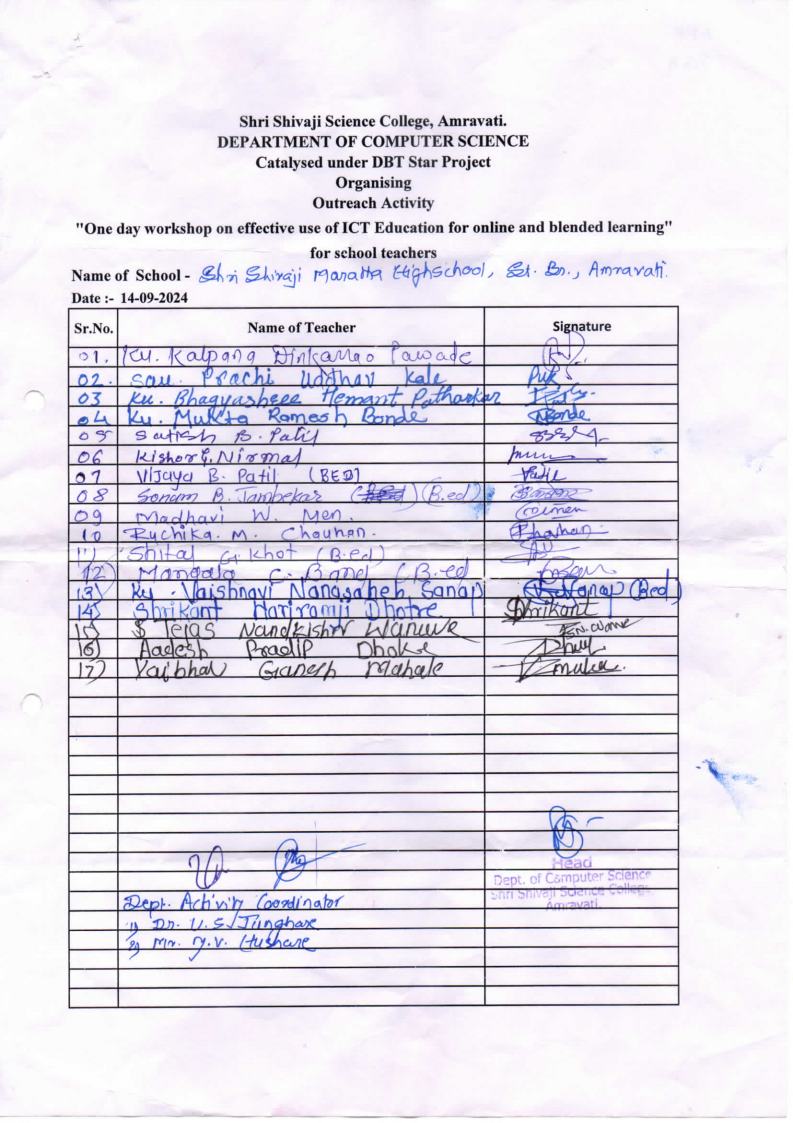 Shri Shivaji Science College, Amravati.
DEPARTMENT OF COMPUTER SCIENCE
Catalysed under DBT Star Project
Organising
Outreach Activity
"One day workshop on effective use of ICT Education for online and blended learning"
for school teachers
Name of School - Shri Shivaji Maratha Highschool, St. Bn., Amravati.
Date :- 14-09-2024
Sr.No. Name of Teacher Signature
01. Ku. Kalpana Dinkarrao Pawade
02. Sau. Prachi Uddhav Kale
03 Ku. Bhagyashree Hemant Patharkar
04 Ku. Mukta Ramesh Bonde Bonde
05 Satish B. Patil
06 Kishor G. Nirmal
07 Vijaya B. Patil (BED) Patil
08 Sonam B. Tambekar (B.ed)
09 Madhavi W. Men.
10 Ruchika. M. Chauhan.
11) Shital G. Khot (B.ed)
12) Mangala C. Band (B.ed
13) Ku. Vaishnavi Nanasaheb Sanap Sanap (Bed)
14) Shrikant Hariramji Dhotre Shrikant
15) Tejas Nandkishor Wanuve
16) Aadesh Pradip Dhoke
17) Vaibhav Ganesh Mahale
Head
Dept. of Computer Science
Shri Shivaji Science College
Amravati.
Dept. Activity Coordinator
1) Dr. U. S. Junghare
2) Mr. Y. V. Hushare